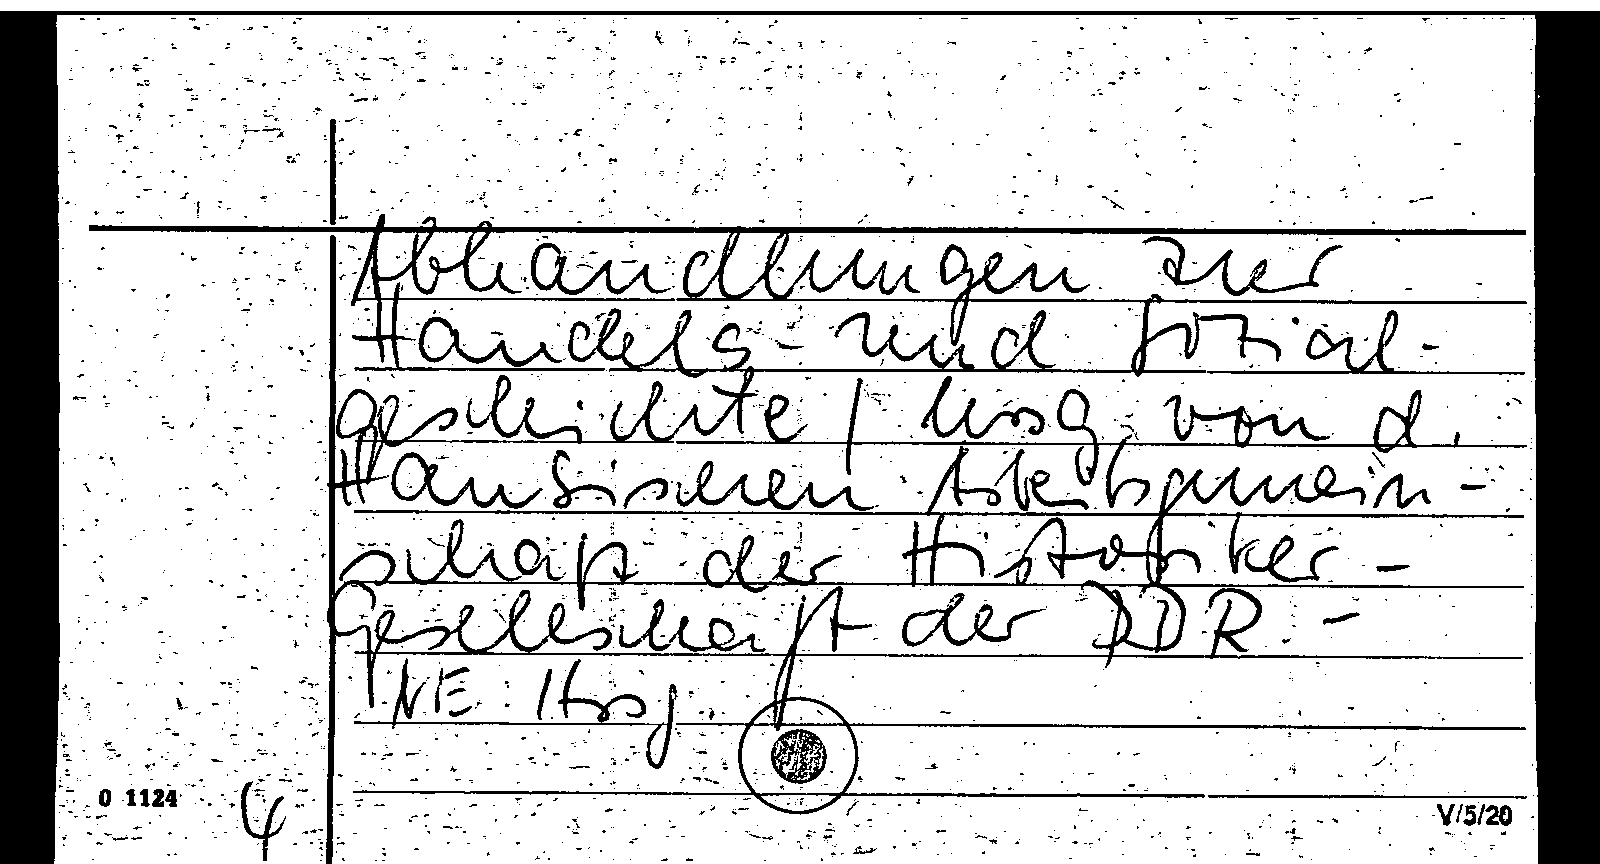 Abhandlungen zur
Handels- und Sozial-
geschichte / hrsg. von d.
Hansischen Arbeitsgemein-
schaft der Historiker-
Gesellschaft der DDR. -
NE Hrsg.
0 1124 4 V/5/20